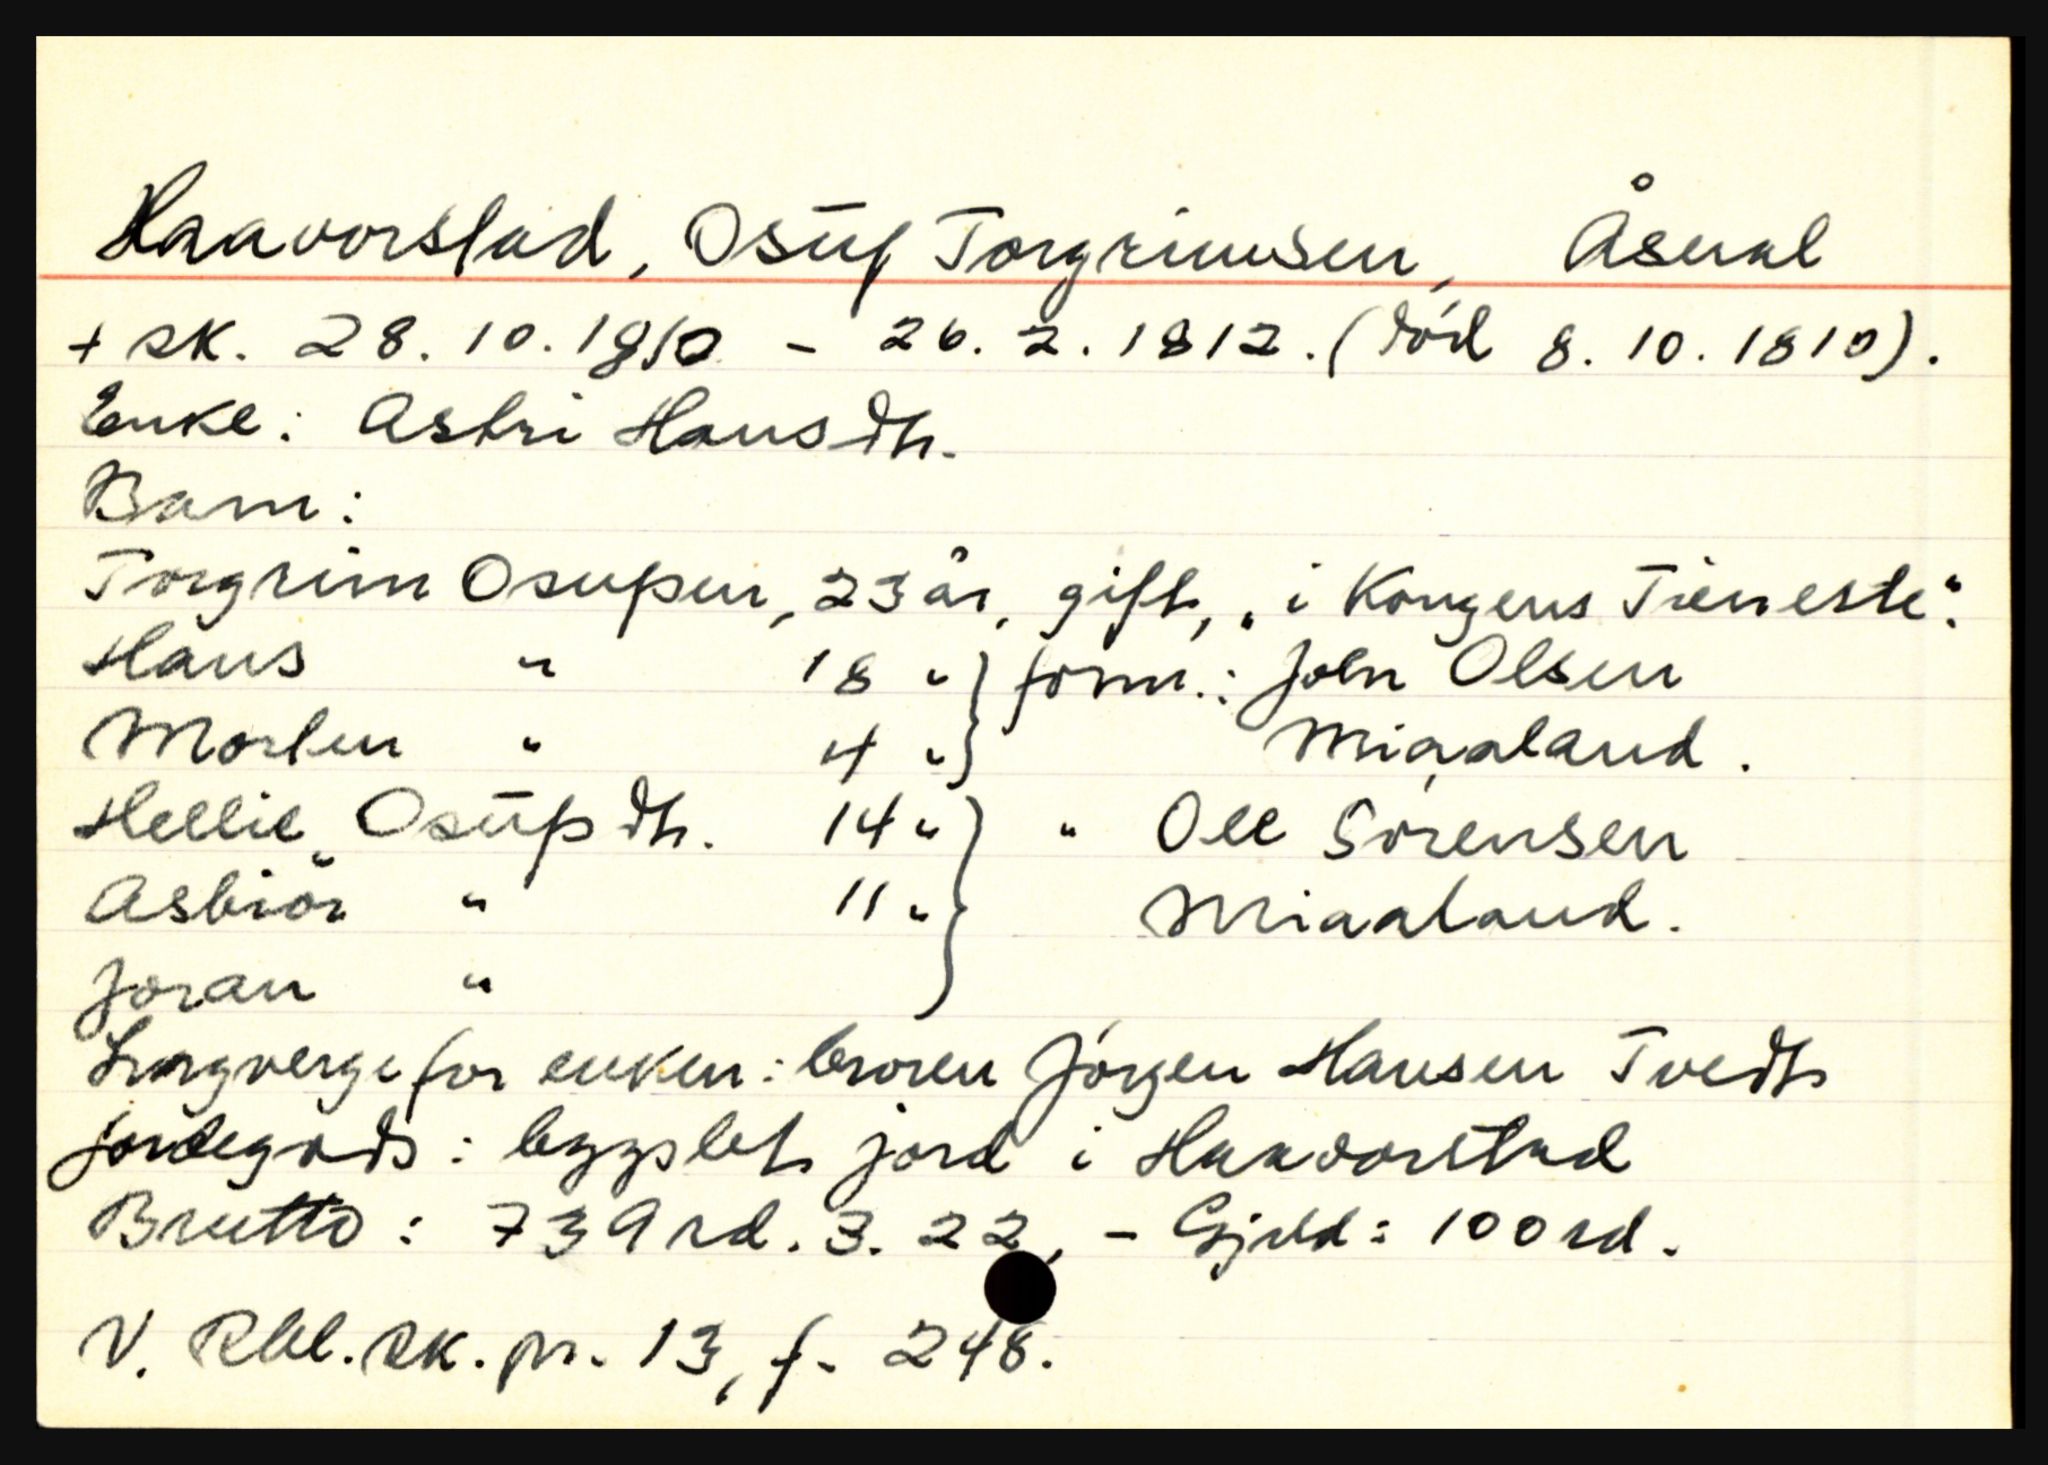 Haavorstad, Osuf Torgrimsen, Åseral
+ sk. 28.10.1810 - 26.2.1812. (död 8.10.1810).
Enke: Astri Hansdtr.
Barn:
Torgrim Osufsen, 23 år, gift, „i Kongens Tieneste".
Hans " 18 " } form.: John Olsen
Morten " 4 " } Miaaland.
Hellie Osufsdtr. 14 " } " Ole Sörensen
Asbiör " 11 " } Miaaland.
Joran " }
Laugverge for enken: broren Jörgen Hansen Tvedt
jordegods: bygslet jord i Haavorstad
Brutto: 739 rd. 3. 22, - Gjeld: 100 rd.
V. Rbl. sk. pr. 13, f. 248.